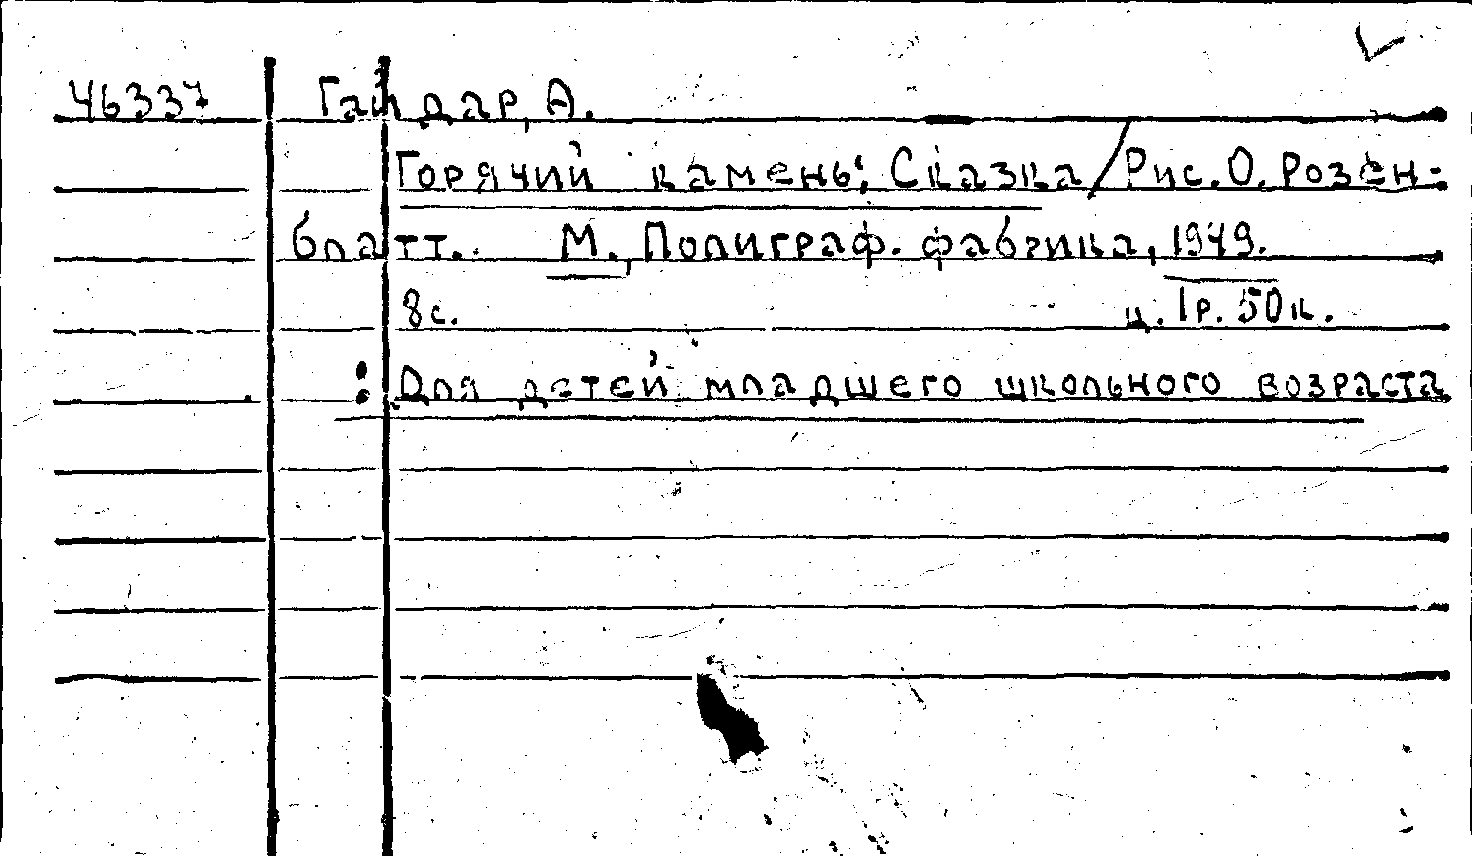 46337 Гайдар, А.
Горячий камень: Сказка / Рис. О. Розен-
блатт. М., Полиграф. фабрика, 1949.
8с. ц. 1р. 50к.
: Для детей младшего школьного возраста